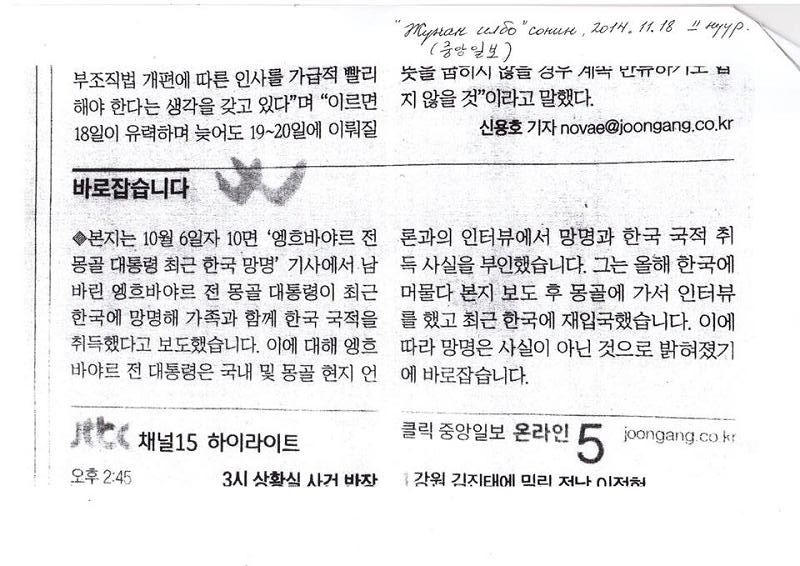 "Жунан илбо" сонин, 2014.11.18 II нүүр.
(중앙일보)
부조직법 개편에 따른 인사를 가급적 빨리
해야 한다는 생각을 갖고 있다”며 “이르면
18일이 유력하며 늦어도 19~20일에 이뤄질
뜻을 굽히지 않을 경우 계속 만류하기도 쉽
지 않을 것”이라고 말했다.
신용호 기자 novae@joongang.co.kr
바로잡습니다
◆본지는 10월 6일자 10면 ‘엥흐바야르 전
몽골 대통령 최근 한국 망명’ 기사에서 남
바린 엥흐바야르 전 몽골 대통령이 최근
한국에 망명해 가족과 함께 한국 국적을
취득했다고 보도했습니다. 이에 대해 엥흐
바야르 전 대통령은 국내 및 몽골 현지 언
론과의 인터뷰에서 망명과 한국 국적 취
득 사실을 부인했습니다. 그는 올해 한국에
머물다 본지 보도 후 몽골에 가서 인터뷰
를 했고 최근 한국에 재입국했습니다. 이에
따라 망명은 사실이 아닌 것으로 밝혀졌기
에 바로잡습니다.
jtbc 채널15 하이라이트
오후 2:45 3시 상황실 사건 반장
클릭 중앙일보 온라인 5 joongang.co.kr
1 강원 김진태에 밀린 전남 이정현